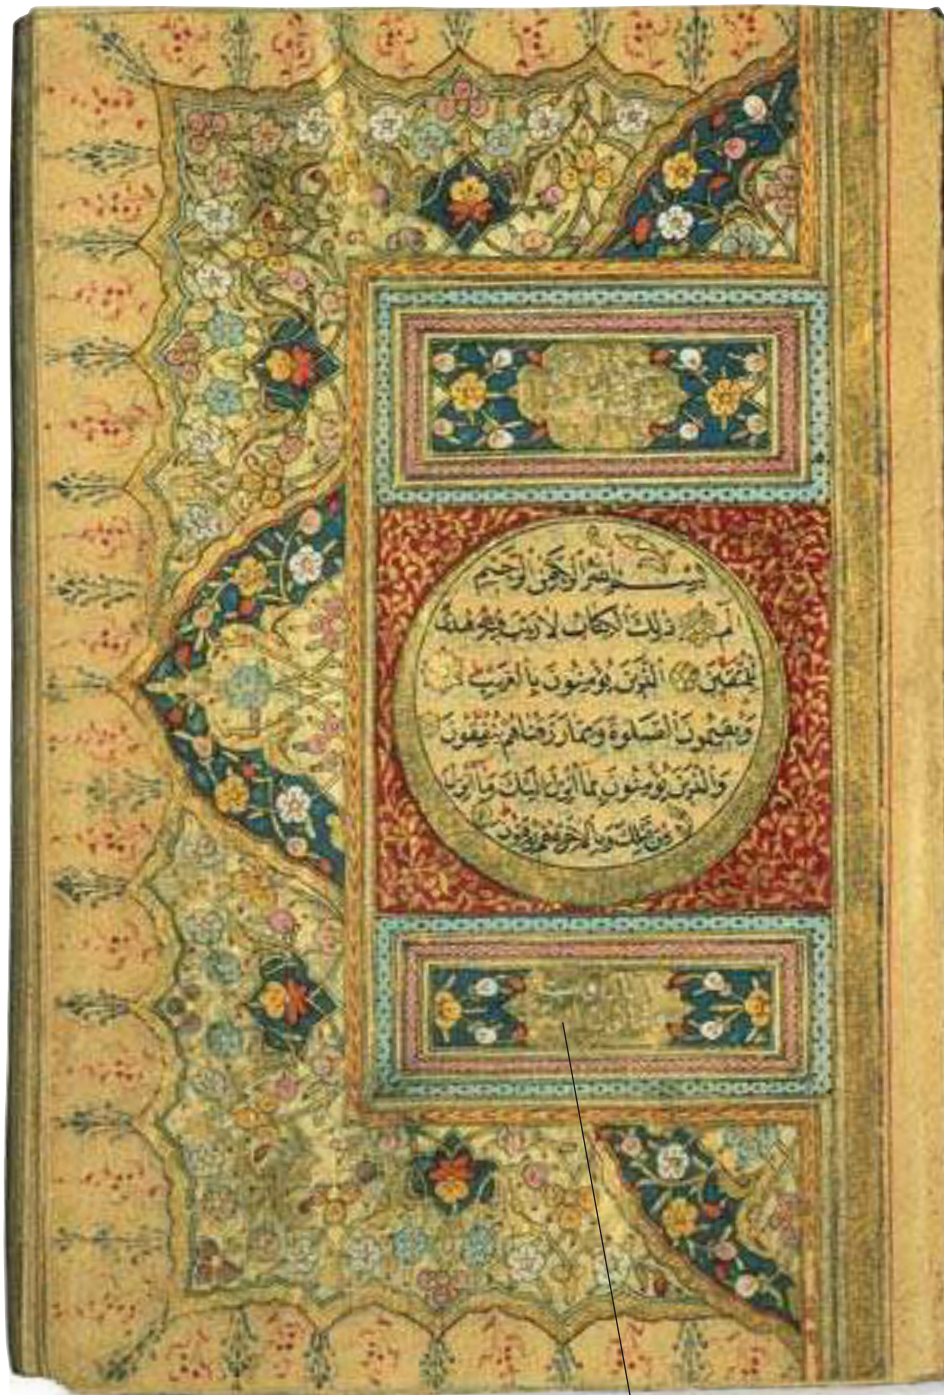 بِسْمِ اللهِ الرَّحْمٰنِ الرَّحِيمِ
الم ذٰلِكَ الْكِتَابُ لَا رَيْبَ فِيهِ هُدًى
لِلْمُتَّقِينَ الَّذِينَ يُؤْمِنُونَ بِالْغَيْبِ
وَيُقِيمُونَ الصَّلٰوةَ وَمِمَّا رَزَقْنَاهُمْ يُنْفِقُونَ
وَالَّذِينَ يُؤْمِنُونَ بِمَا أُنْزِلَ إِلَيْكَ وَمَا أُنْزِلَ
مِنْ قَبْلِكَ وَبِالْآخِرَةِ هُمْ يُوقِنُونَ